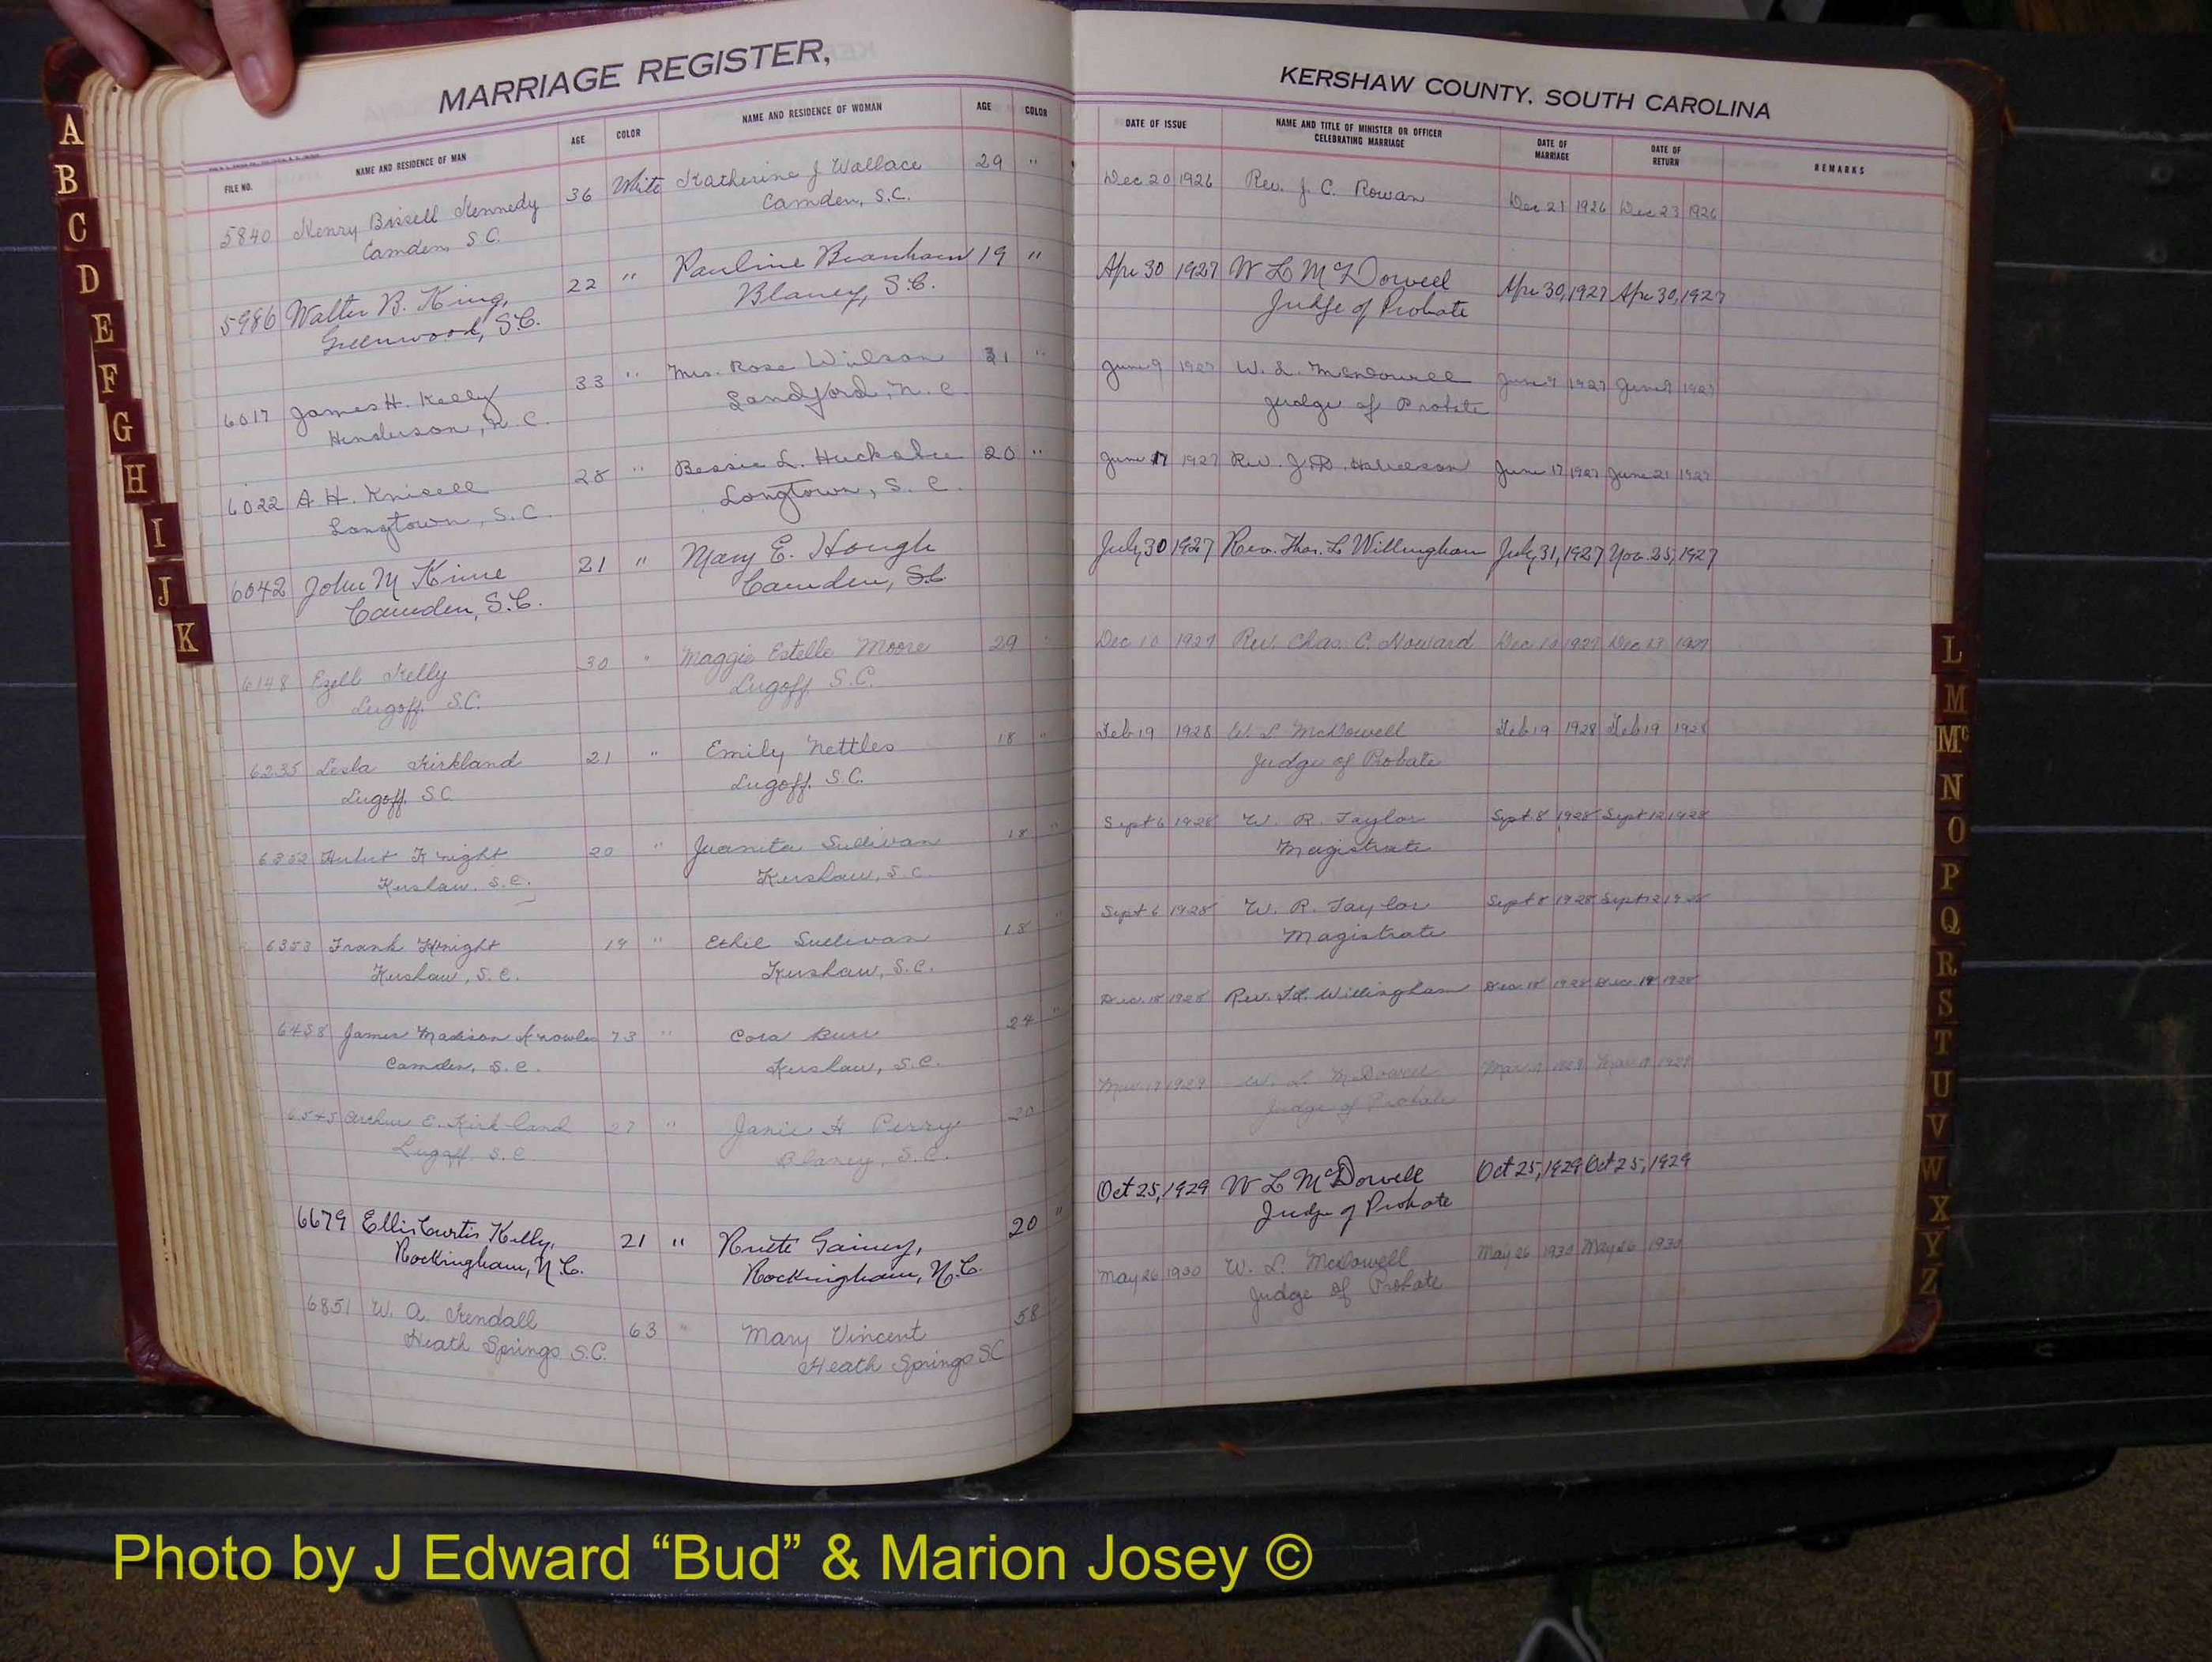 MARRIAGE REGISTER,
FILE NO. NAME AND RESIDENCE OF MAN AGE COLOR NAME AND RESIDENCE OF WOMAN AGE COLOR
5840 Henry Bissell Kennedy 36 White Katherine J Wallace 29 "
Camden S.C. Camden, S.C.
5986 Walter B. King, 22 " Pauline Branham 19 "
Greenwood, S.C. Blaney, S.C.
6017 James H. Kelly 33 " Mrs. Rose Wilson 31 "
Henderson, N.C. Landford, N.C.
6022 A. H. Knisell 28 " Bessie L. Huckabee 20 "
Longtown, S.C. Longtown, S.C.
6042 John M Kinne 21 " Mary E. Hough
Camden, S.C. Camden, S.C.
6148 Ezell Kelly 30 " Maggie Estelle Moore 29 "
Lugoff S.C. Lugoff S.C.
6235 Lesla Kirkland 21 " Emily Nettles 18 "
Lugoff. SC Lugoff. S.C.
6352 Hubert Knight 20 " Juanita Sullivan 18 "
Kershaw, S.C. Kershaw, S.C.
6353 Frank Knight 19 " Ethel Sullivan 18 "
Kershaw, S.C. Kershaw, S.C.
6458 James Madison Knowles 73 " Cora 24 "
Camden, S.C. Kershaw, S.C.
6545 Archie E. Kirkland 27 " Janie H Perry 20
Lugoff. S.C. Blaney, S.C.
6679 Ellis Curtis Kelly, 21 " Gainey, 20 "
Rockingham, N.C. Rockingham, N.C.
6851 W. A. Kendall 63 " Mary Vincent 58
Heath Springs S.C. Heath Springs SC
KERSHAW COUNTY, SOUTH CAROLINA
DATE OF ISSUE NAME AND TITLE OF MINISTER OR OFFICER CELEBRATING MARRIAGE DATE OF MARRIAGE DATE OF RETURN REMARKS
Dec 20 1926 Rev. J. C. Rowan Dec 21 1926 Dec 23 1926
Apr 30 1927 W L McDowell Apr 30, 1927 Apr 30, 1927
Judge of Probate
June 9 1927 W. L. McDowell June 9 1927 June 9 1927
Judge of Probate
June 17 1927 Rev. J. D. June 17 1927 June 21 1927
July 30 1927 Rev. Thos. L Willingham July 31, 1927 Nov. 25, 1927
Dec 10 1927 Rev. Chas. C. Howard Dec 10 1927 Dec 13 1927
Feb 19 1928 W L McDowell Feb 19 1928 Feb 19 1928
Judge of Probate
Sept 6 1928 W. R. Taylor Sept 8 1928 Sept 12 1928
Magistrate
Sept 6 1928 W. R. Taylor Sept 8 1928 Sept 12 1928
Magistrate
Dec. 18 1928 Rev. T.L. Willingham Dec. 18 1928 Dec. 19 1928
Mar. 1929 W. L. McDowell Mar 1929 Mar 1929
Judge of Probate
Oct 25, 1929 W L McDowell Oct 25, 1929 Oct 25, 1929
Judge of Probate
May 26 1930 W. L. McDowell May 26 1930 May 26 1930
Judge of Probate
A
B
C
D
E
F
G
H
I
J
K
L
M
Mc
N
O
P
Q
R
S
T
U
V
W
X
Y
Z
Photo by J Edward “Bud” & Marion Josey ©